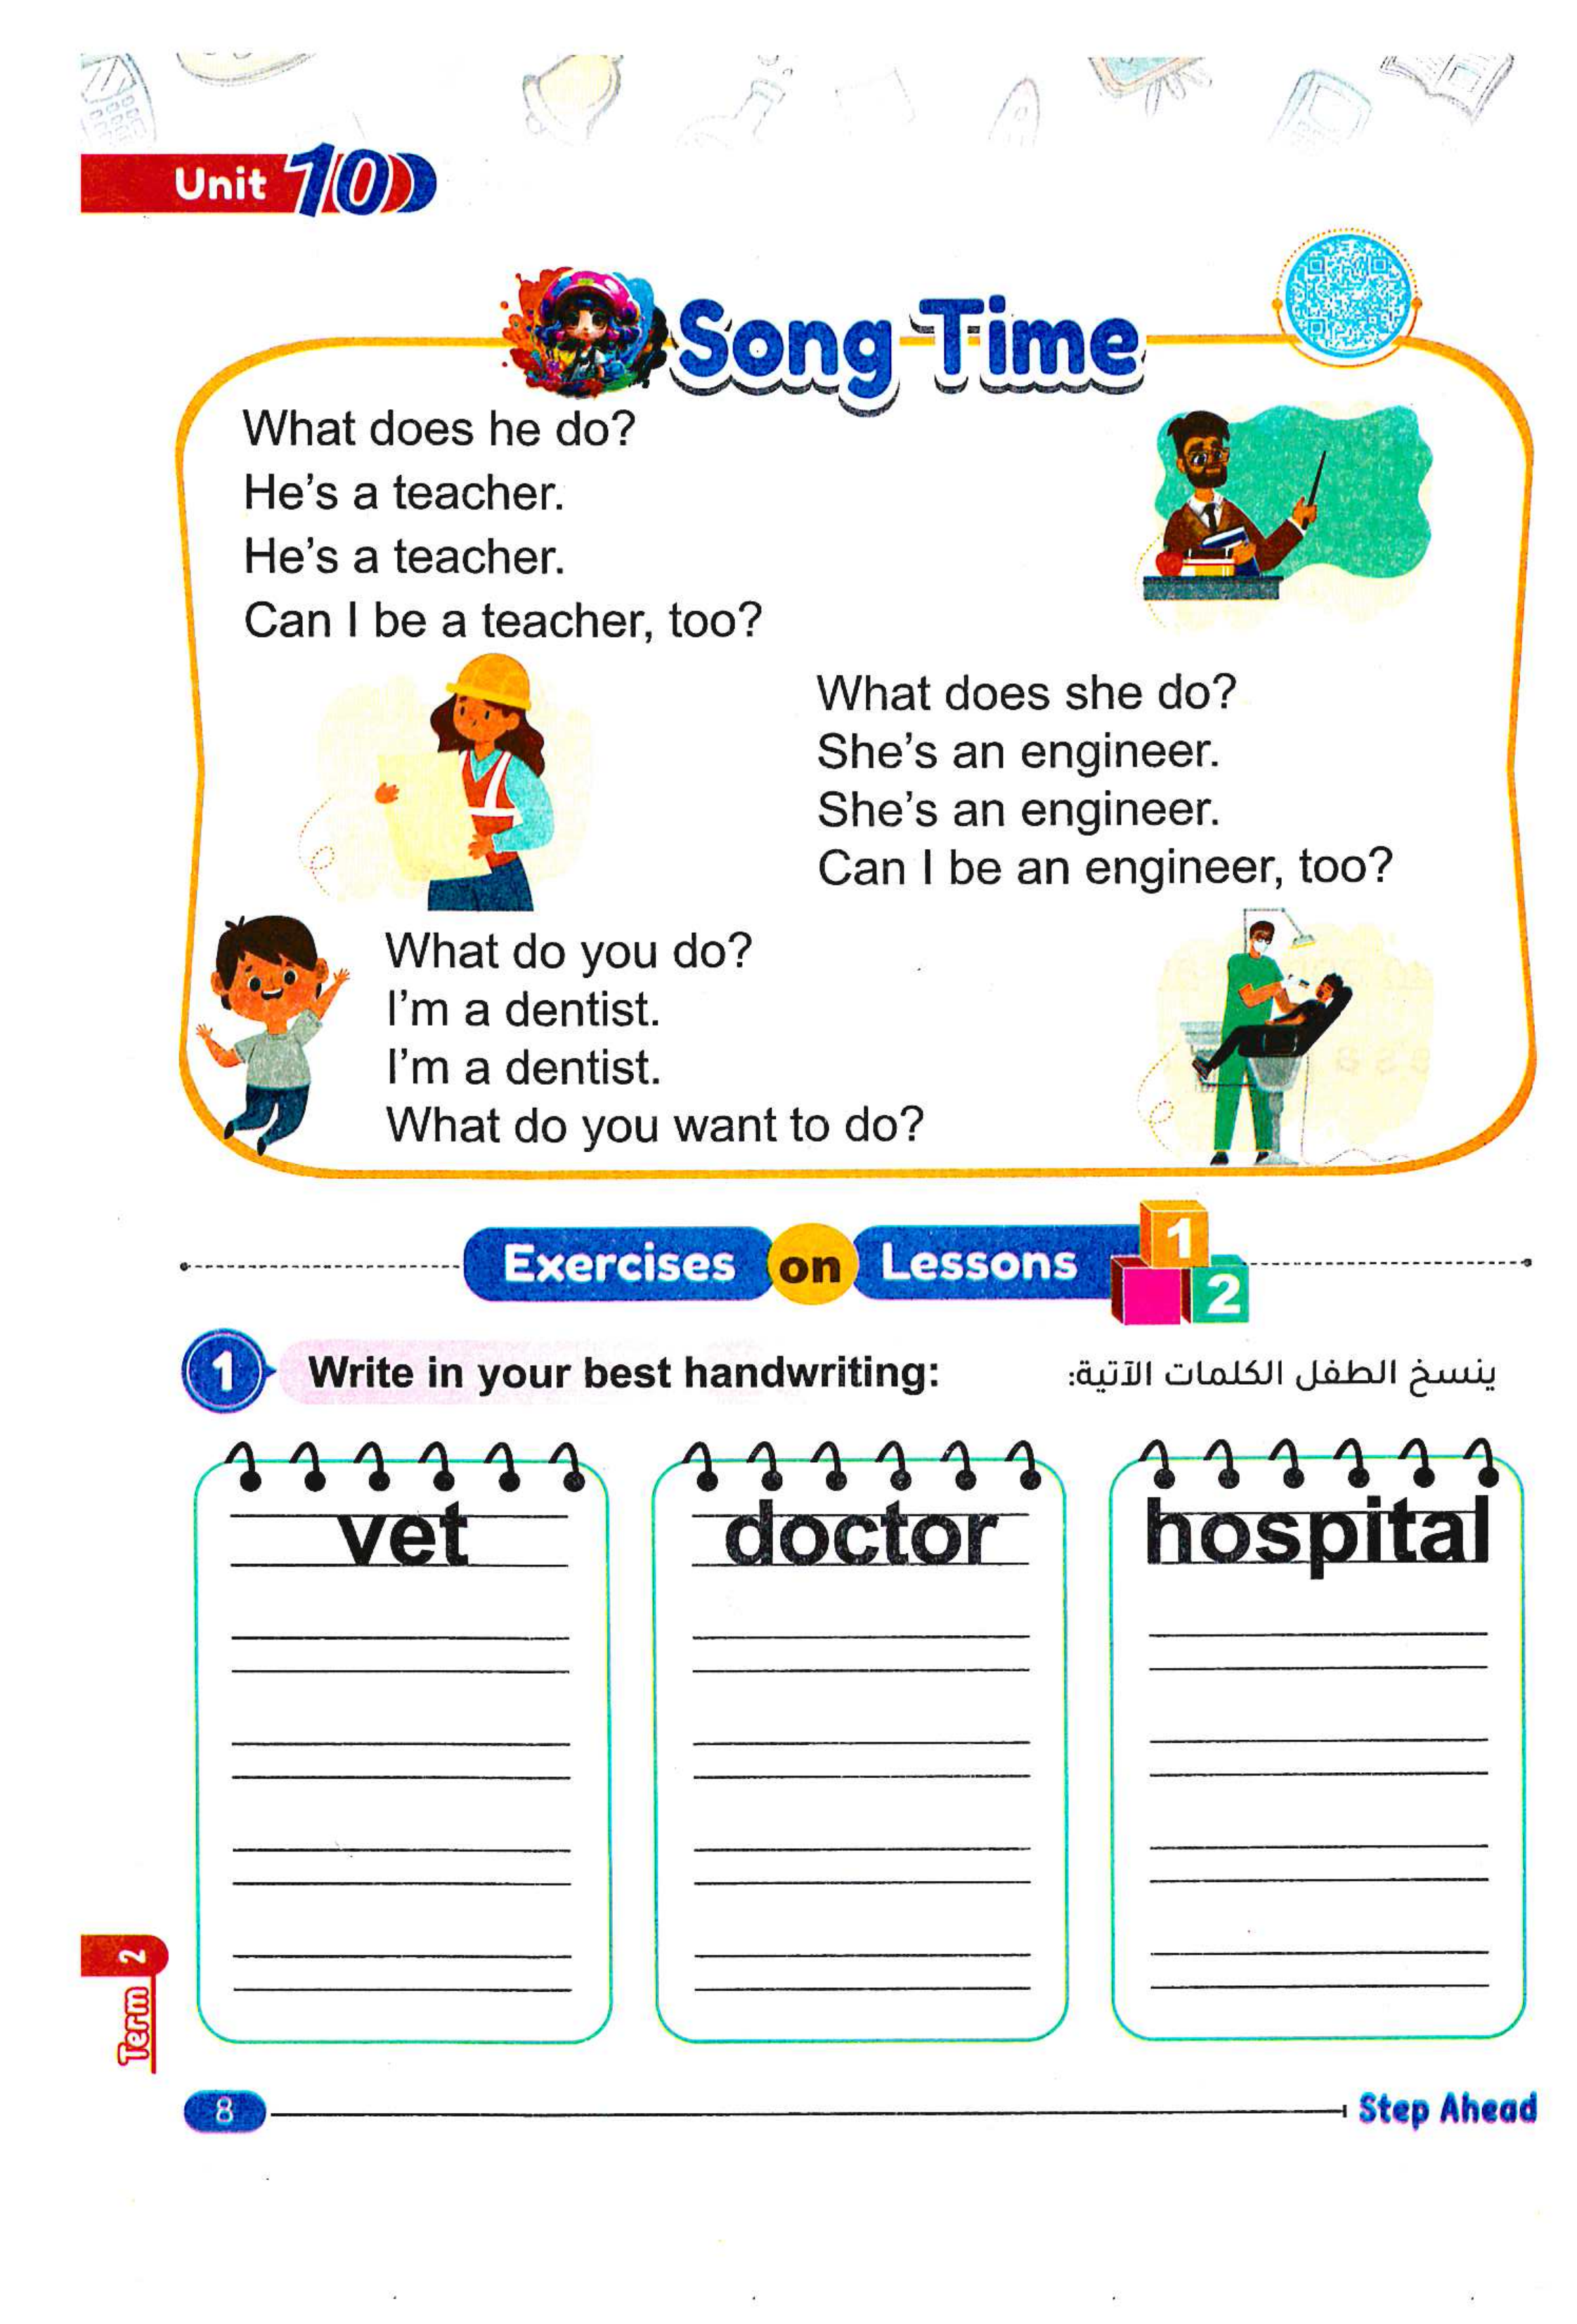 Unit 10
Song Time
What does he do?
He's a teacher.
He's a teacher.
Can I be a teacher, too?
What does she do?
She's an engineer.
She's an engineer.
Can I be an engineer, too?
What do you do?
I'm a dentist.
I'm a dentist.
What do you want to do?
Exercises on Lessons 1 2
1 Write in your best handwriting:
ينسخ الطفل الكلمات الآتية:
vet
doctor
hospital
Term 2
8
Step Ahead